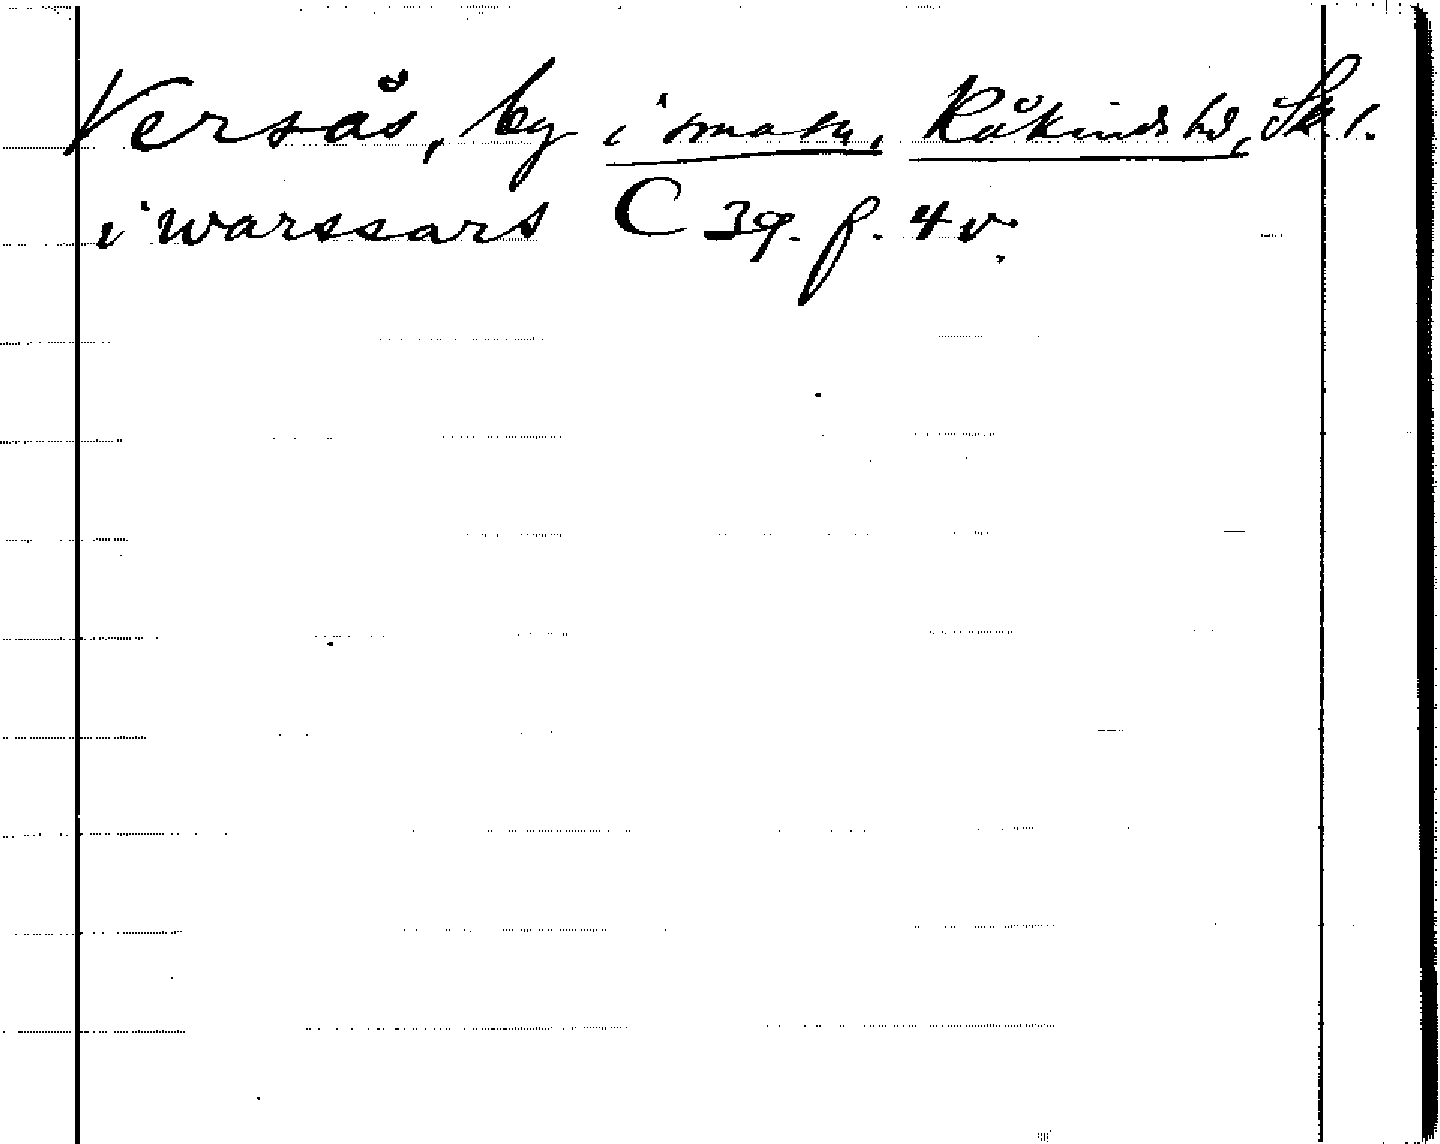 Versås, by i smak, Kåkinds hd, Sk l.
i warssars C 39. f. 4 v.